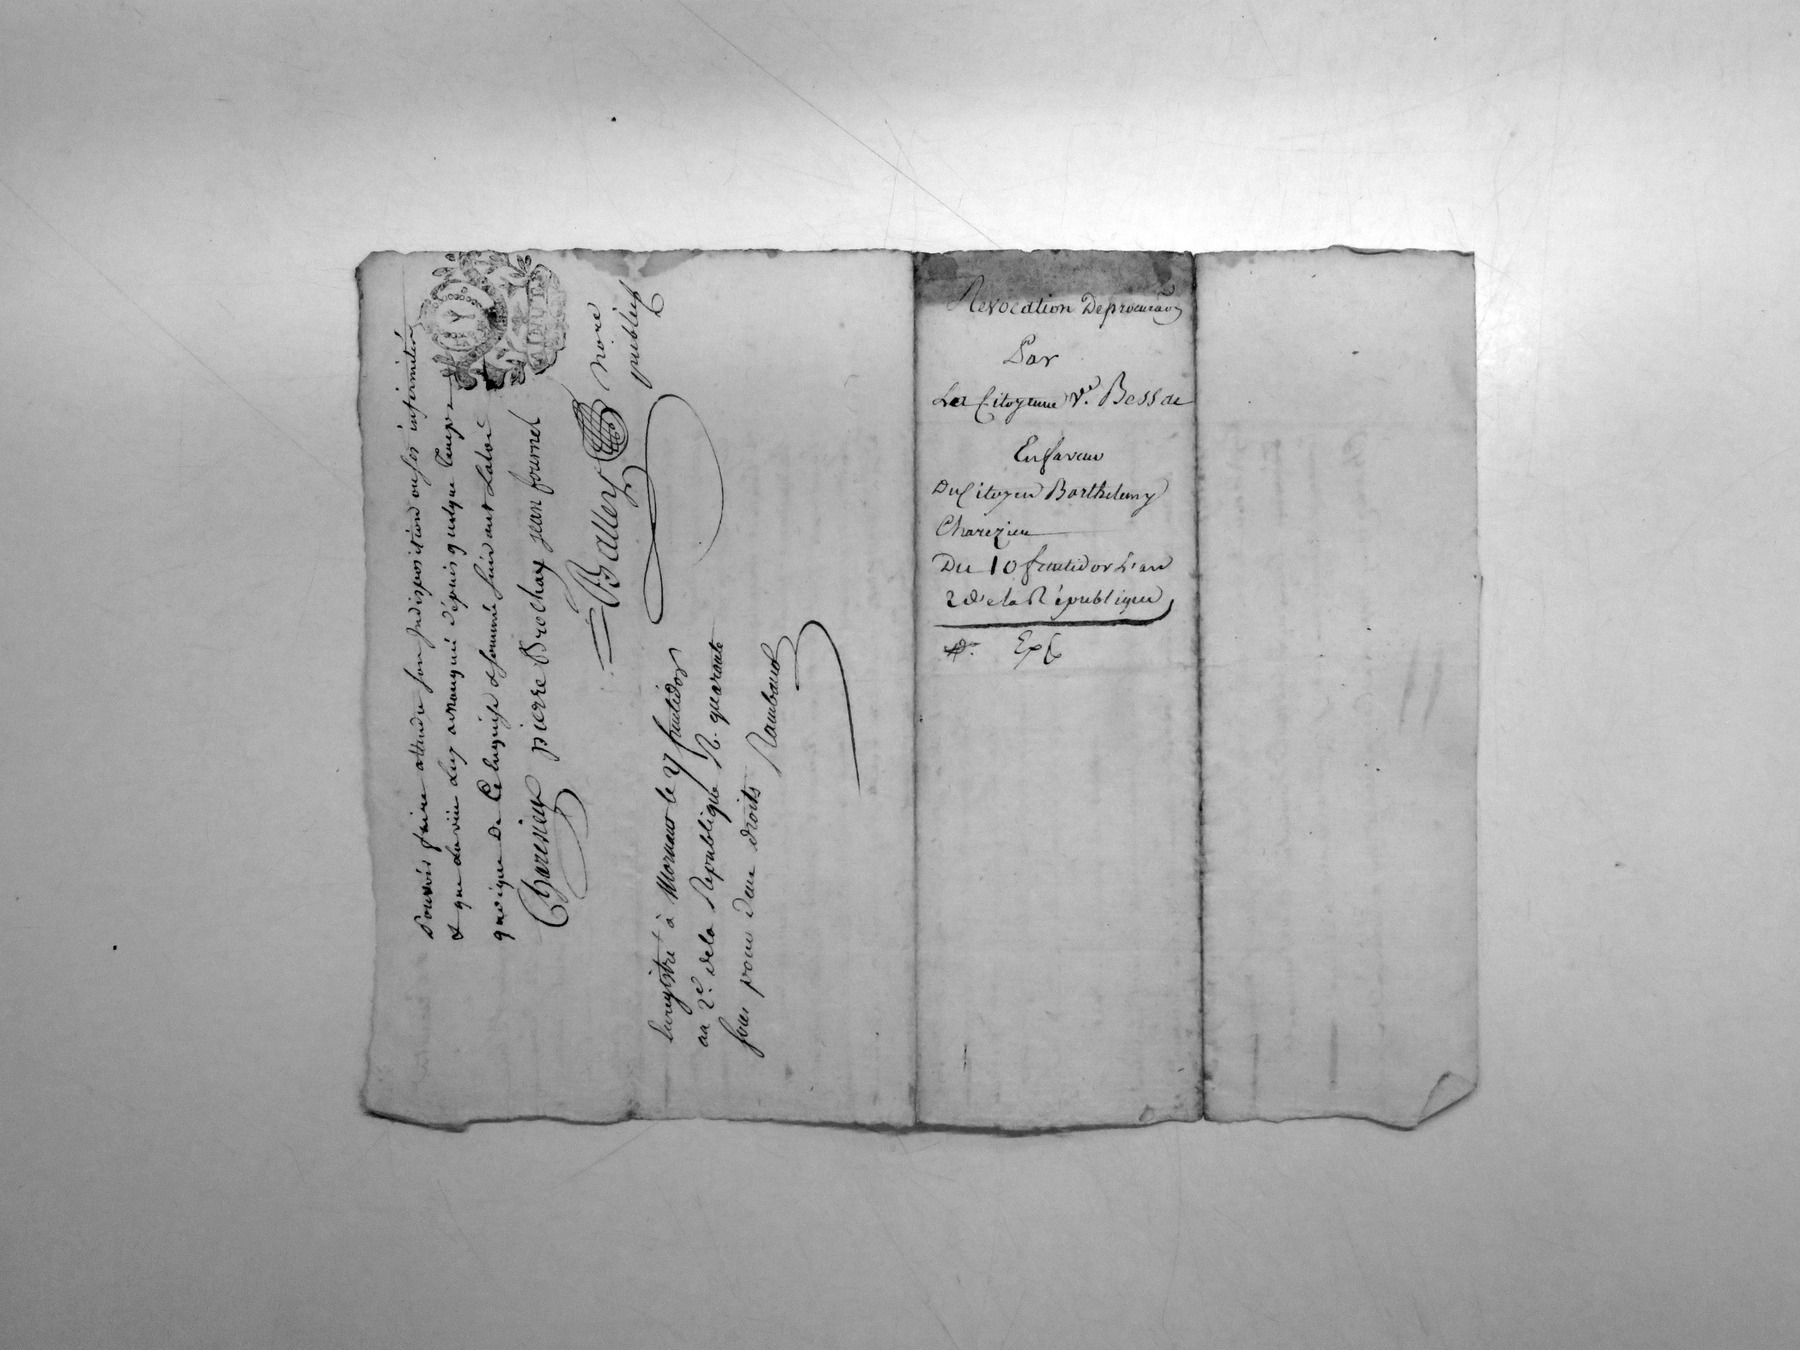 pouvoir faire attendu son indisposition ou ses infirmités
& que la vüe luy a manqué depuis quelque temps
quoique de ce enquise & sommé suivant la loi
Charesieux pierre Brochay jean fournel
Balley nore
publicq
Enregistré à Mornant le 27 fructidor
an 2e. de la Republique R. quarante
sous pour deux droits Raimbaud
Revocation De procurãon
Par
La Citoyenne Ve. Bessac
En faveur
Du Citoyen Barthelemy
Charezieu
Du 10 fructidor L'an
2 de la République
Expé